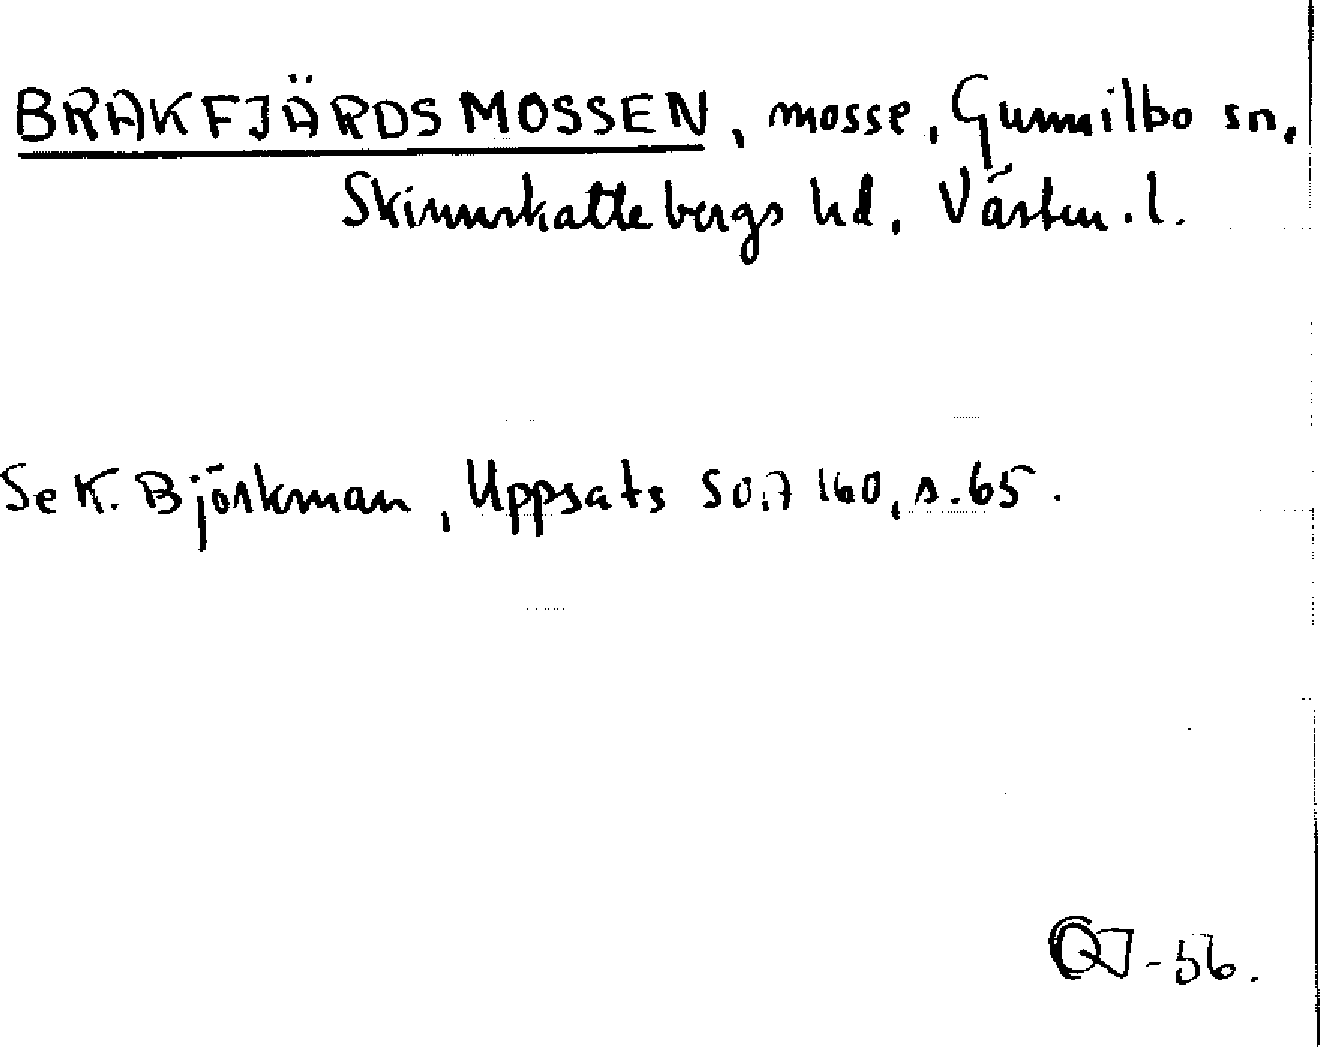 BRAKFJÄRDSMOSSEN, mosse, Gunnilbo sn,
Skinnskattebergs hd, Västm. l.
Se K. Björkman, Uppsats SO.7 160, s. 65.
-56.